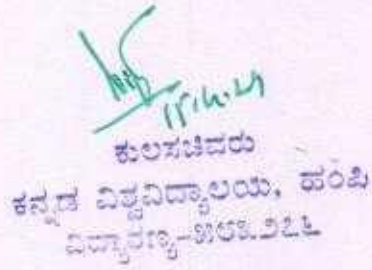 ಕುಲಸಚಿವರು
ಕನ್ನಡ ವಿಶ್ವವಿದ್ಯಾಲಯ, ಹಂಪಿ
ವಿದ್ಯಾರಣ್ಯ-೫೮೩.೨೭೬